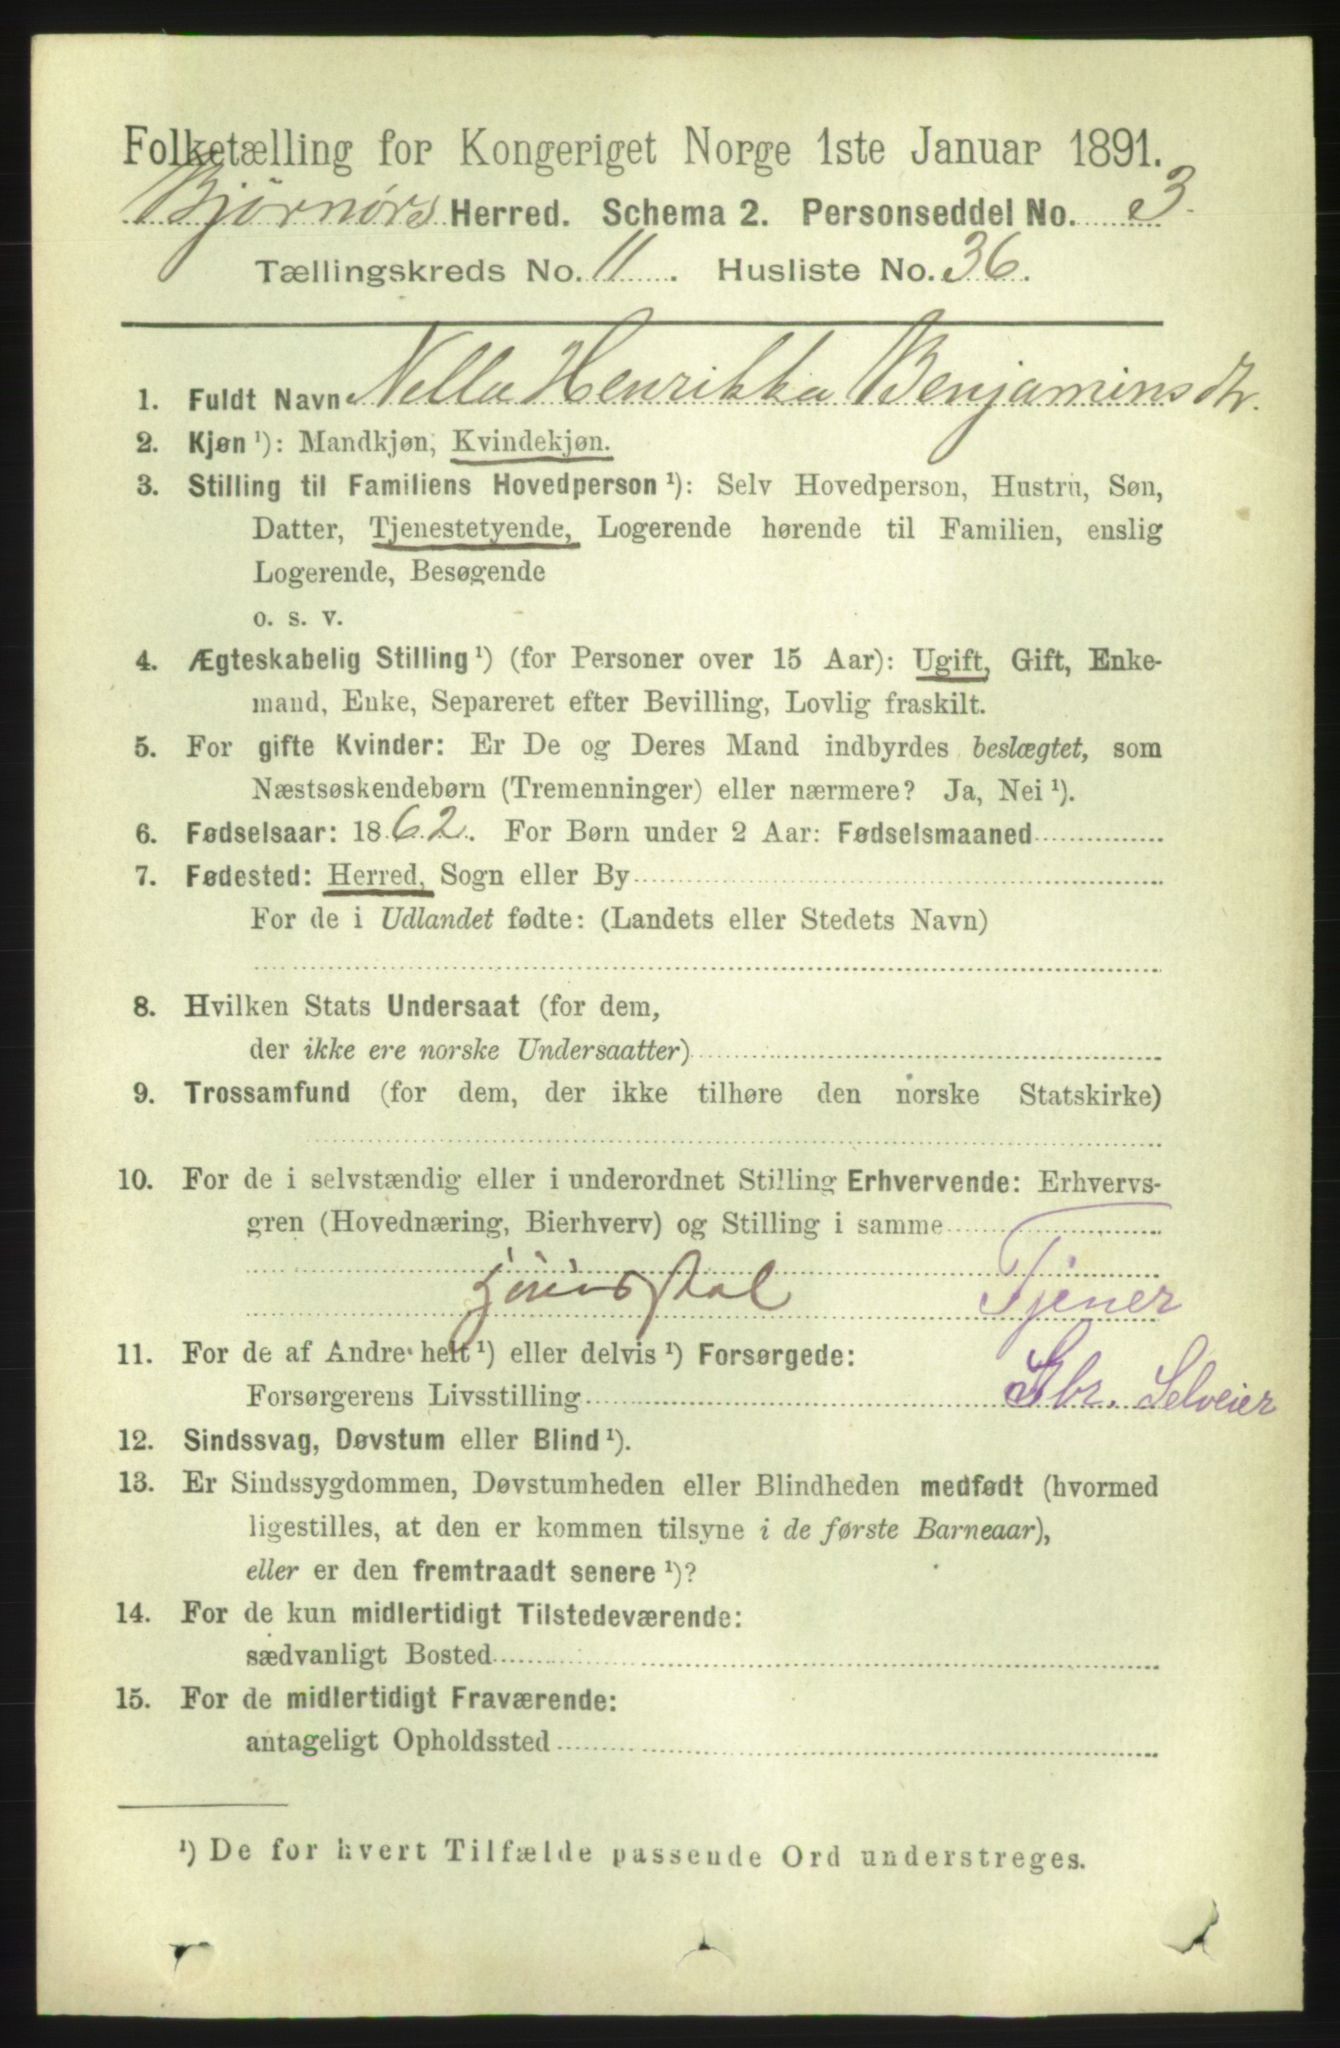 Folketælling for Kongeriget Norge 1ste Januar 1891.
Bjørnørs Herred. Schema 2. Personseddel No. 3.
Tællingskreds No. 11. Husliste No. 36.
1. Fuldt Navn Nella Henrikka Benjaminsdtr.
2. Kjøn ¹): Mandkjøn, Kvindekjøn.
3. Stilling til Familiens Hovedperson ¹): Selv Hovedperson, Hustru, Søn,
Datter, Tjenestetyende, Logerende hørende til Familien, enslig
Logerende, Besøgende
o. s. v.
4. Ægteskabelig Stilling ¹) (for Personer over 15 Aar): Ugift, Gift, Enke-
mand, Enke, Separeret efter Bevilling, Lovlig fraskilt.
5. For gifte Kvinder: Er De og Deres Mand indbyrdes beslægtet, som
Næstsøskendebørn (Tremenninger) eller nærmere? Ja, Nei ¹).
6. Fødselsaar: 1862. For Børn under 2 Aar: Fødselsmaaned
7. Fødested: Herred, Sogn eller By
For de i Udlandet fødte: (Landets eller Stedets Navn)
8. Hvilken Stats Undersaat (for dem,
der ikke ere norske Undersaatter)
9. Trossamfund (for dem, der ikke tilhøre den norske Statskirke)
10. For de i selvstændig eller i underordnet Stilling Erhvervende: Erhvervs-
gren (Hovednæring, Bierhverv) og Stilling i samme
Tjener
11. For de af Andre helt ¹) eller delvis ¹) Forsørgede:
Forsørgerens Livsstilling Gbr. Selveier
12. Sindssvag, Døvstum eller Blind ¹).
13. Er Sindssygdommen, Døvstumheden eller Blindheden medfødt (hvormed
ligestilles, at den er kommen tilsyne i de første Barneaar),
eller er den fremtraadt senere ¹)?
14. For de kun midlertidigt Tilstedeværende:
sædvanligt Bosted
15. For de midlertidigt Fraværende:
antageligt Opholdssted
¹) De for hvert Tilfælde passende Ord understreges.